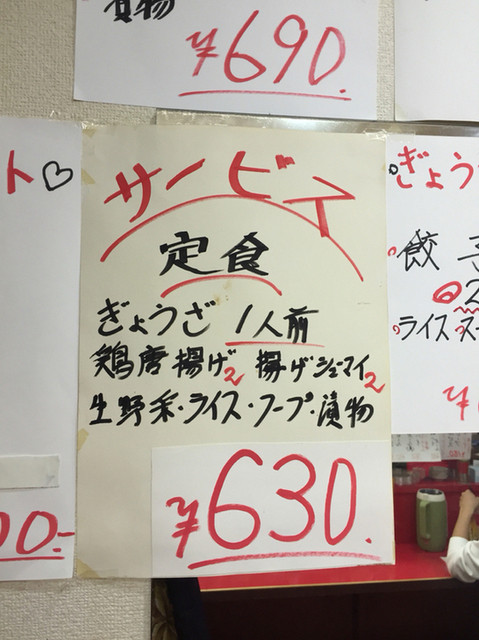 貨物
¥690.
ト♡
サービス
定食
ぎょうざ 1人前
鶏唐揚げ2 揚げシューマイ2
生野菜・ライス・スープ・漬物
¥630.
00.-
ぎょう
餃子
2
ライス スー
¥